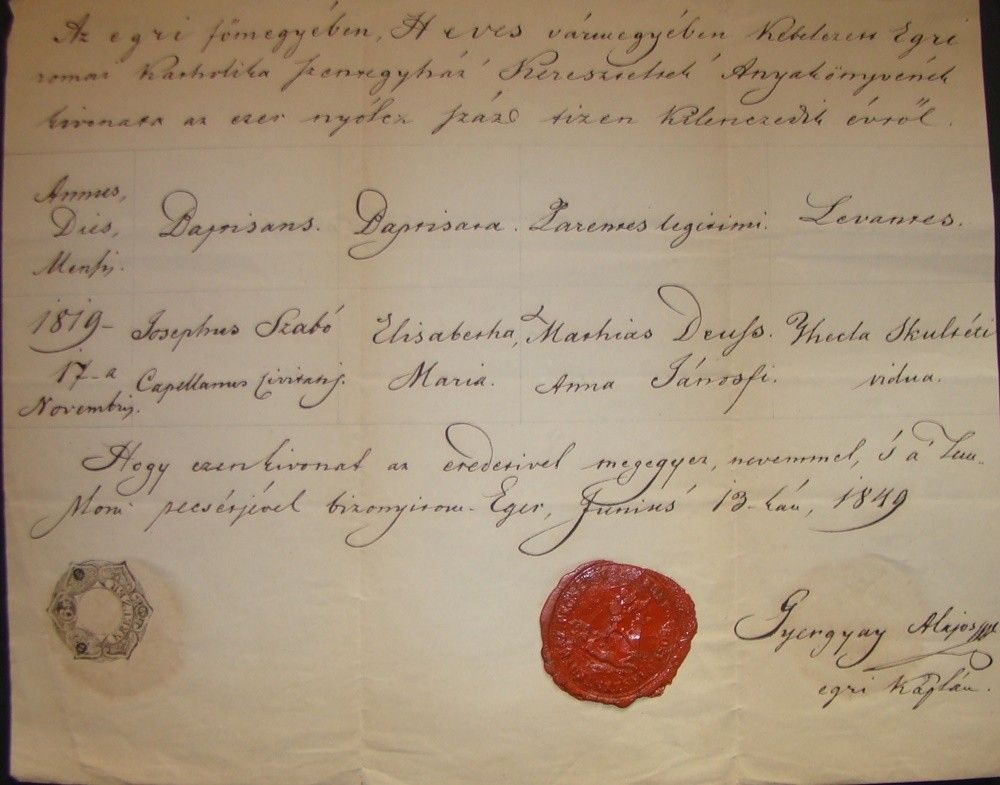 Az egri főmegyében, Heves vármegyében kebelezett Egri
romai Katholika szentegyház' Keresztelteк' Anyakönyvének
kivonata az ezer nyólcz száz tizen kilenczedik évről.
Annus, Dies, Mensis. Baptisans. Baptisata. Parentes legitimi. Levantes.
1819- Josephus Szabó Elisabetha, Mathias Deuss. Thecla Skultéti
17-a Capellanus Civitatis. Maria. Anna Jánosfi. vidua.
Novembris.
Hogy ezen kivonat az eredetivel megegyez, nevemmel, 's a'
pecsétjével bizonyitom. Eger, Junius' 13-kán, 1849
Gyengyay Alajos
egri Káplán.